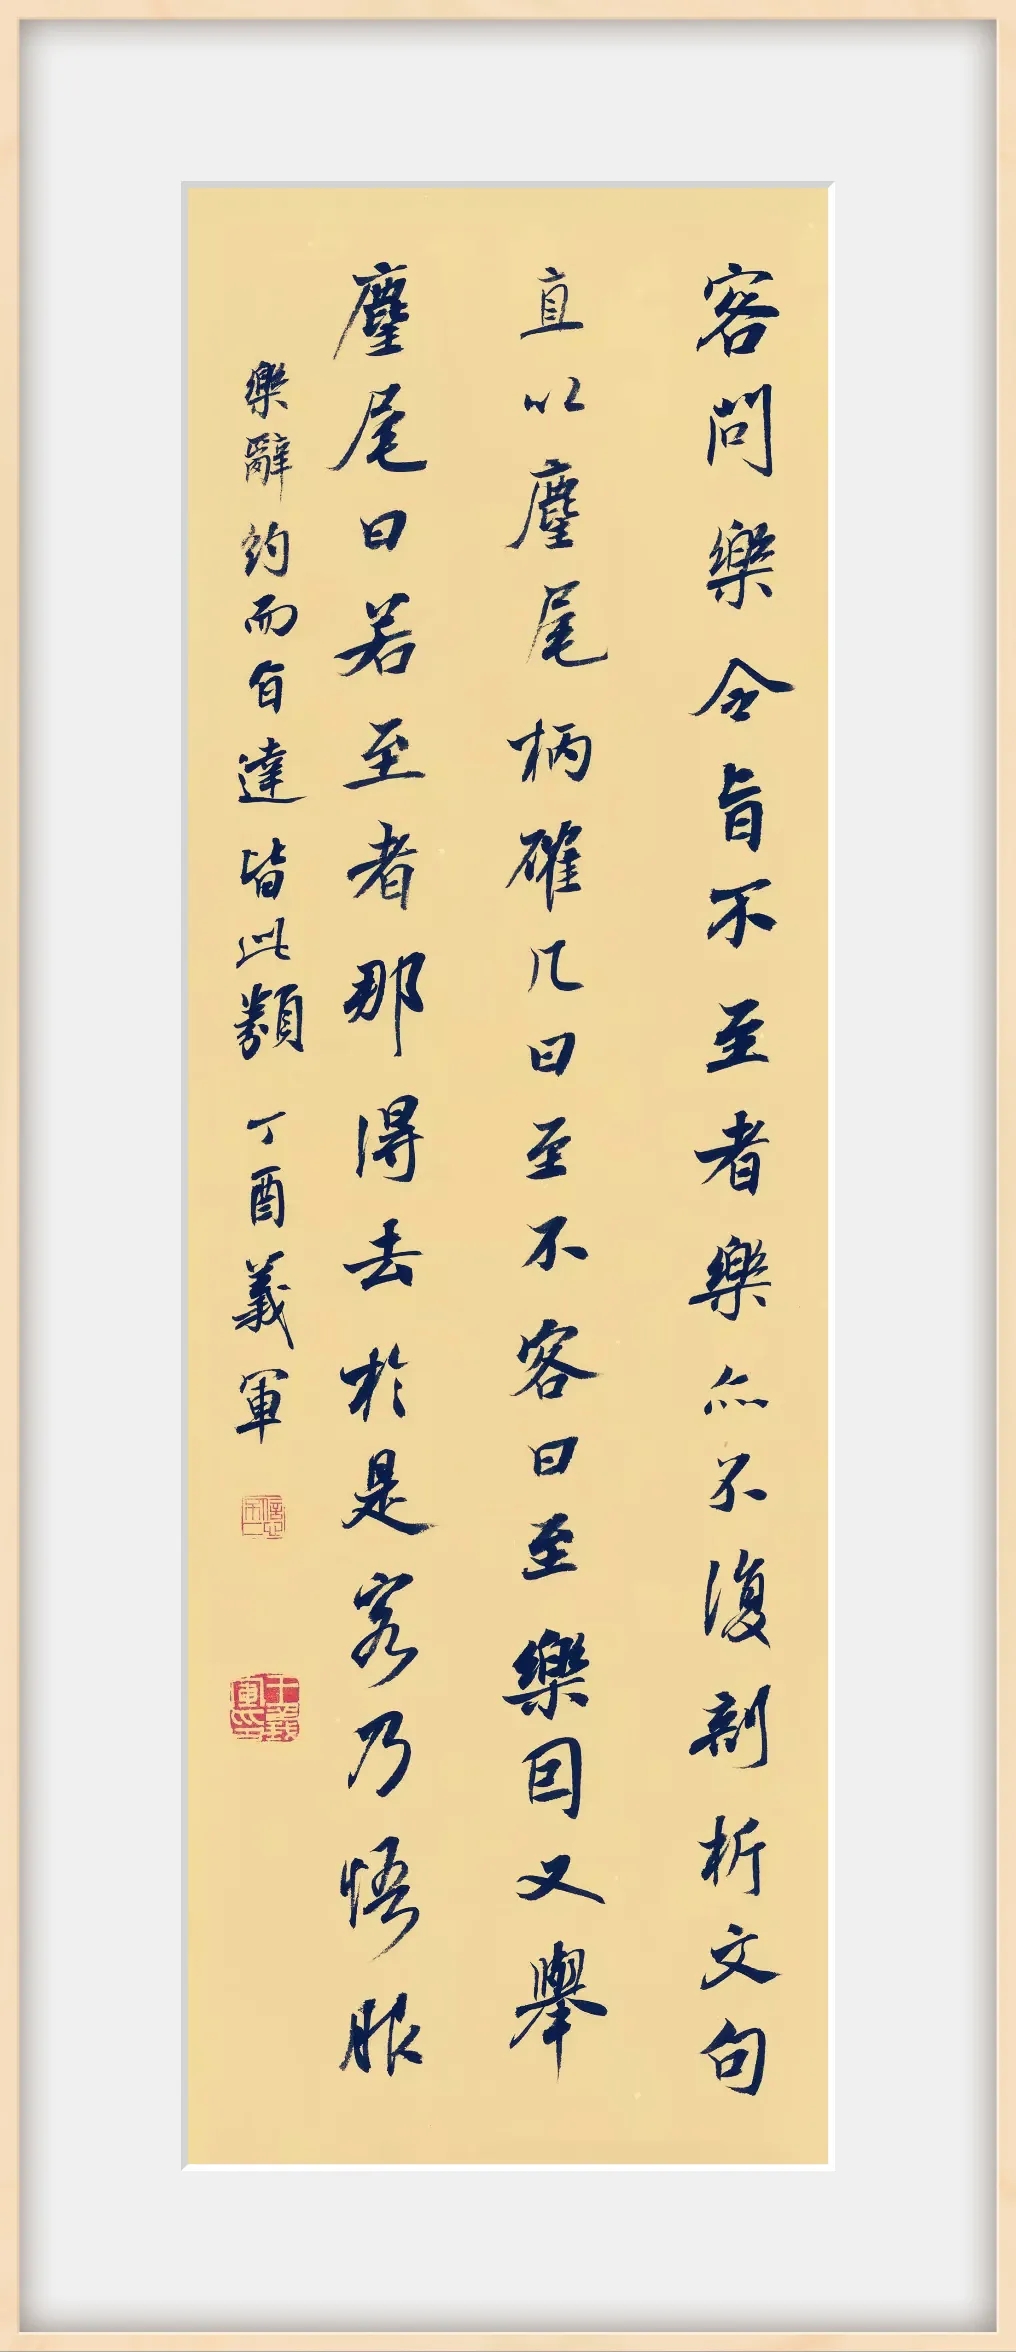 客問樂令旨不至者樂亦不復剖析文句
直以麈尾柄確几曰至不客曰至樂因又舉
麈尾曰若至者那得去於是客乃悟服
樂辭約而旨達皆此類 丁酉義軍
王義軍印